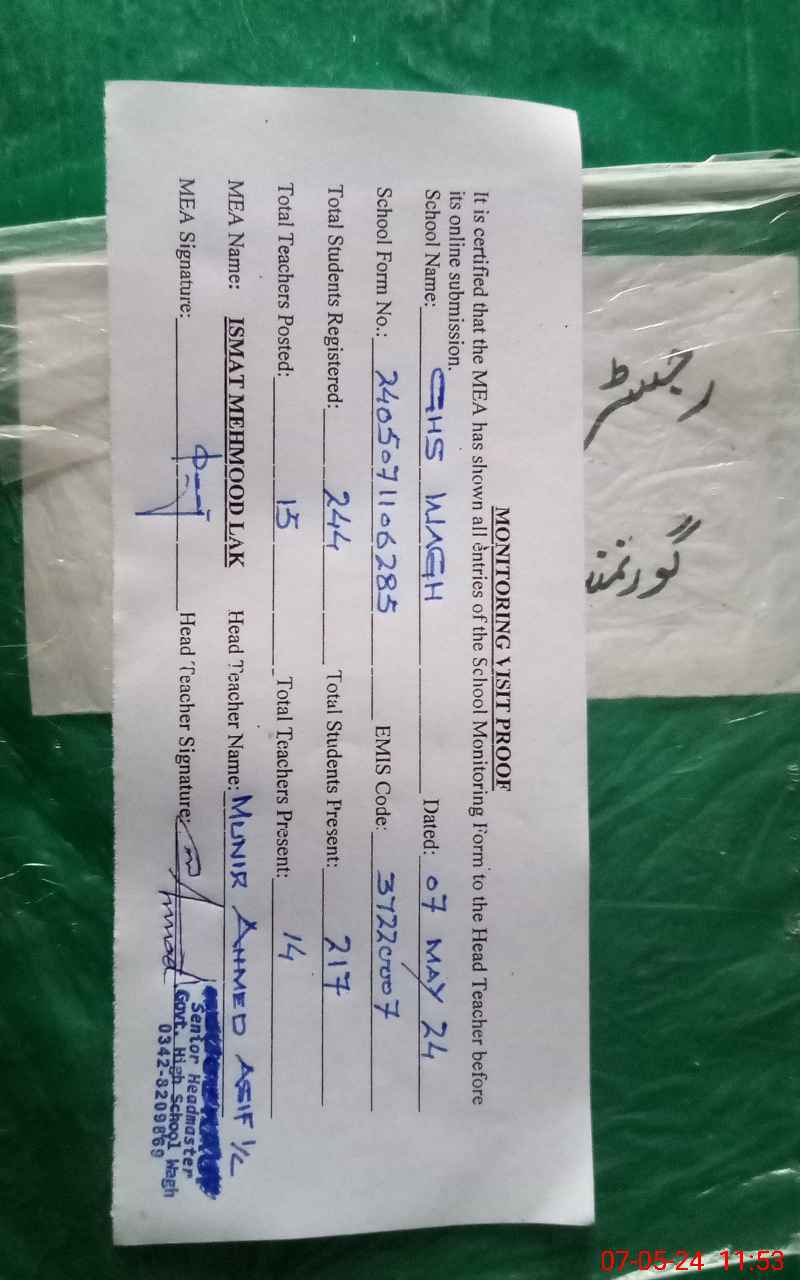 MONITORING VISIT PROOF
It is certified that the MEA has shown all entries of the School Monitoring Form to the Head Teacher before
its online submission.
School Name: GHS WAGH Dated: 07 MAY 24
School Form No.: 2405071106285 EMIS Code: 37220007
Total Students Registered: 244 Total Students Present: 217
Total Teachers Posted: 15 Total Teachers Present: 14
MEA Name: ISMAT MEHMOOD LAK Head Teacher Name: MUNIR AHMED ASIF I/C
MEA Signature: Head Teacher Signature:
Senior Headmaster
Govt. High School Wagh
0342-8209869
رجسٹر
گورنمنٹ
07-05-24 11:53